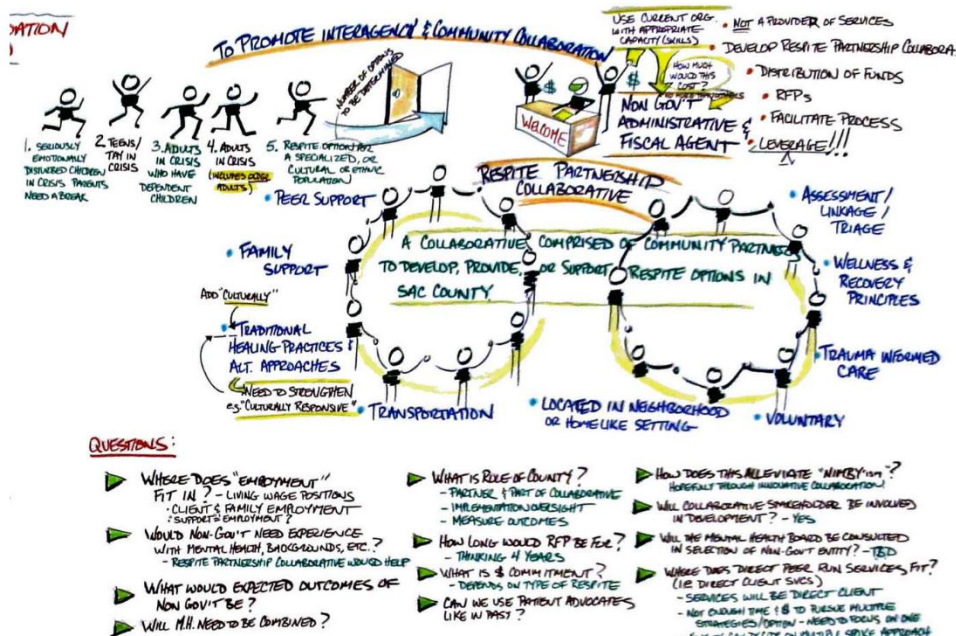 DATION
TO PROMOTE INTERAGENCY & COMMUNITY COLLABORATION
NUMBER OF OPTIONS
TO BE DETERMINED
WELCOME
$
$
USE CURRENT ORG.
WITH APPROPRIATE
CAPACITY (SKILLS)
HOW MUCH
WOULD THIS
COST?
NON GOV'T
ADMINISTRATIVE &
FISCAL AGENT
• NOT A PROVIDER OF SERVICES
• DEVELOP RESPITE PARTNERSHIP COLLABORA
• DISTRIBUTION OF FUNDS
• RFPs
• FACILITATE PROCESS
• LEVERAGE!!!
1. SERIOUSLY
EMOTIONALLY
DISTURBED CHILDREN
IN CRISIS PARENTS
NEED A BREAK
2. TEENS/
TAY IN
CRISIS
3. ADULTS
IN CRISIS
WHO HAVE
DEPENDENT
CHILDREN
4. ADULTS
IN CRISIS
(INCLUDES OLDER
ADULTS)
5. RESPITE OPTION FOR
A SPECIALIZED, OR
CULTURAL OR ETHNIC
POPULATION
RESPITE PARTNERSHIP
COLLABORATIVE
A COLLABORATIVE COMPRISED OF COMMUNITY PARTNERS
TO DEVELOP, PROVIDE, OR SUPPORT RESPITE OPTIONS IN
SAC COUNTY
• PEER SUPPORT
• FAMILY
SUPPORT
ADD "CULTURALLY"
• TRADITIONAL
HEALING PRACTICES &
ALT. APPROACHES
NEED TO STRENGTHEN
e.g. "CULTURALLY RESPONSIVE"
• TRANSPORTATION
• LOCATED IN NEIGHBORHOOD
OR HOMELIKE SETTING
• VOLUNTARY
• TRAUMA INFORMED
CARE
• WELLNESS &
RECOVERY
PRINCIPLES
• ASSESSMENT/
LINKAGE/
TRIAGE
QUESTIONS:
WHERE DOES "EMPLOYMENT"
FIT IN? - LIVING WAGE POSITIONS
· CLIENT & FAMILY EMPLOYMENT
· SUPPORTS EMPLOYMENT?
WOULD NON-GOV'T NEED EXPERIENCE
WITH MENTAL HEALTH, BACKGROUNDS, ETC.?
- RESPITE PARTNERSHIP COLLABORATIVE WOULD HELP
WHAT WOULD EXPECTED OUTCOMES OF
NON GOV'T BE?
WILL M.H. NEED TO BE COMBINED?
WHAT IS ROLE OF COUNTY?
- PARTNER & PART OF COLLABORATIVE
- IMPLEMENTATION OVERSIGHT
- MEASURE OUTCOMES
HOW LONG WOULD RFP BE FOR?
- THINKING 4 YEARS
WHAT IS $ COMMITMENT?
- DEPENDS ON TYPE OF RESPITE
CAN WE USE PATIENT ADVOCATES
LIKE IN PAST?
HOW DOES THIS ALLEVIATE "NIMBY'ism"?
HOPEFULLY THROUGH INNOVATIVE COLLABORATION!
WILL COLLABORATIVE STAKEHOLDER BE INVOLVED
IN DEVELOPMENT? - YES
WILL THE MENTAL HEALTH BOARD BE CONSULTED
IN SELECTION OF NON-GOV'T ENTITY? - TBD
WHERE DOES DIRECT PEER RUN SERVICES FIT?
(I.E. DIRECT CLIENT SVCS)
- SERVICES WILL BE DIRECT CLIENT
- NOT ENOUGH TIME & $ TO PURSUE MULTIPLE
STRATEGIES/OPTION - NEED TO FOCUS ON ONE